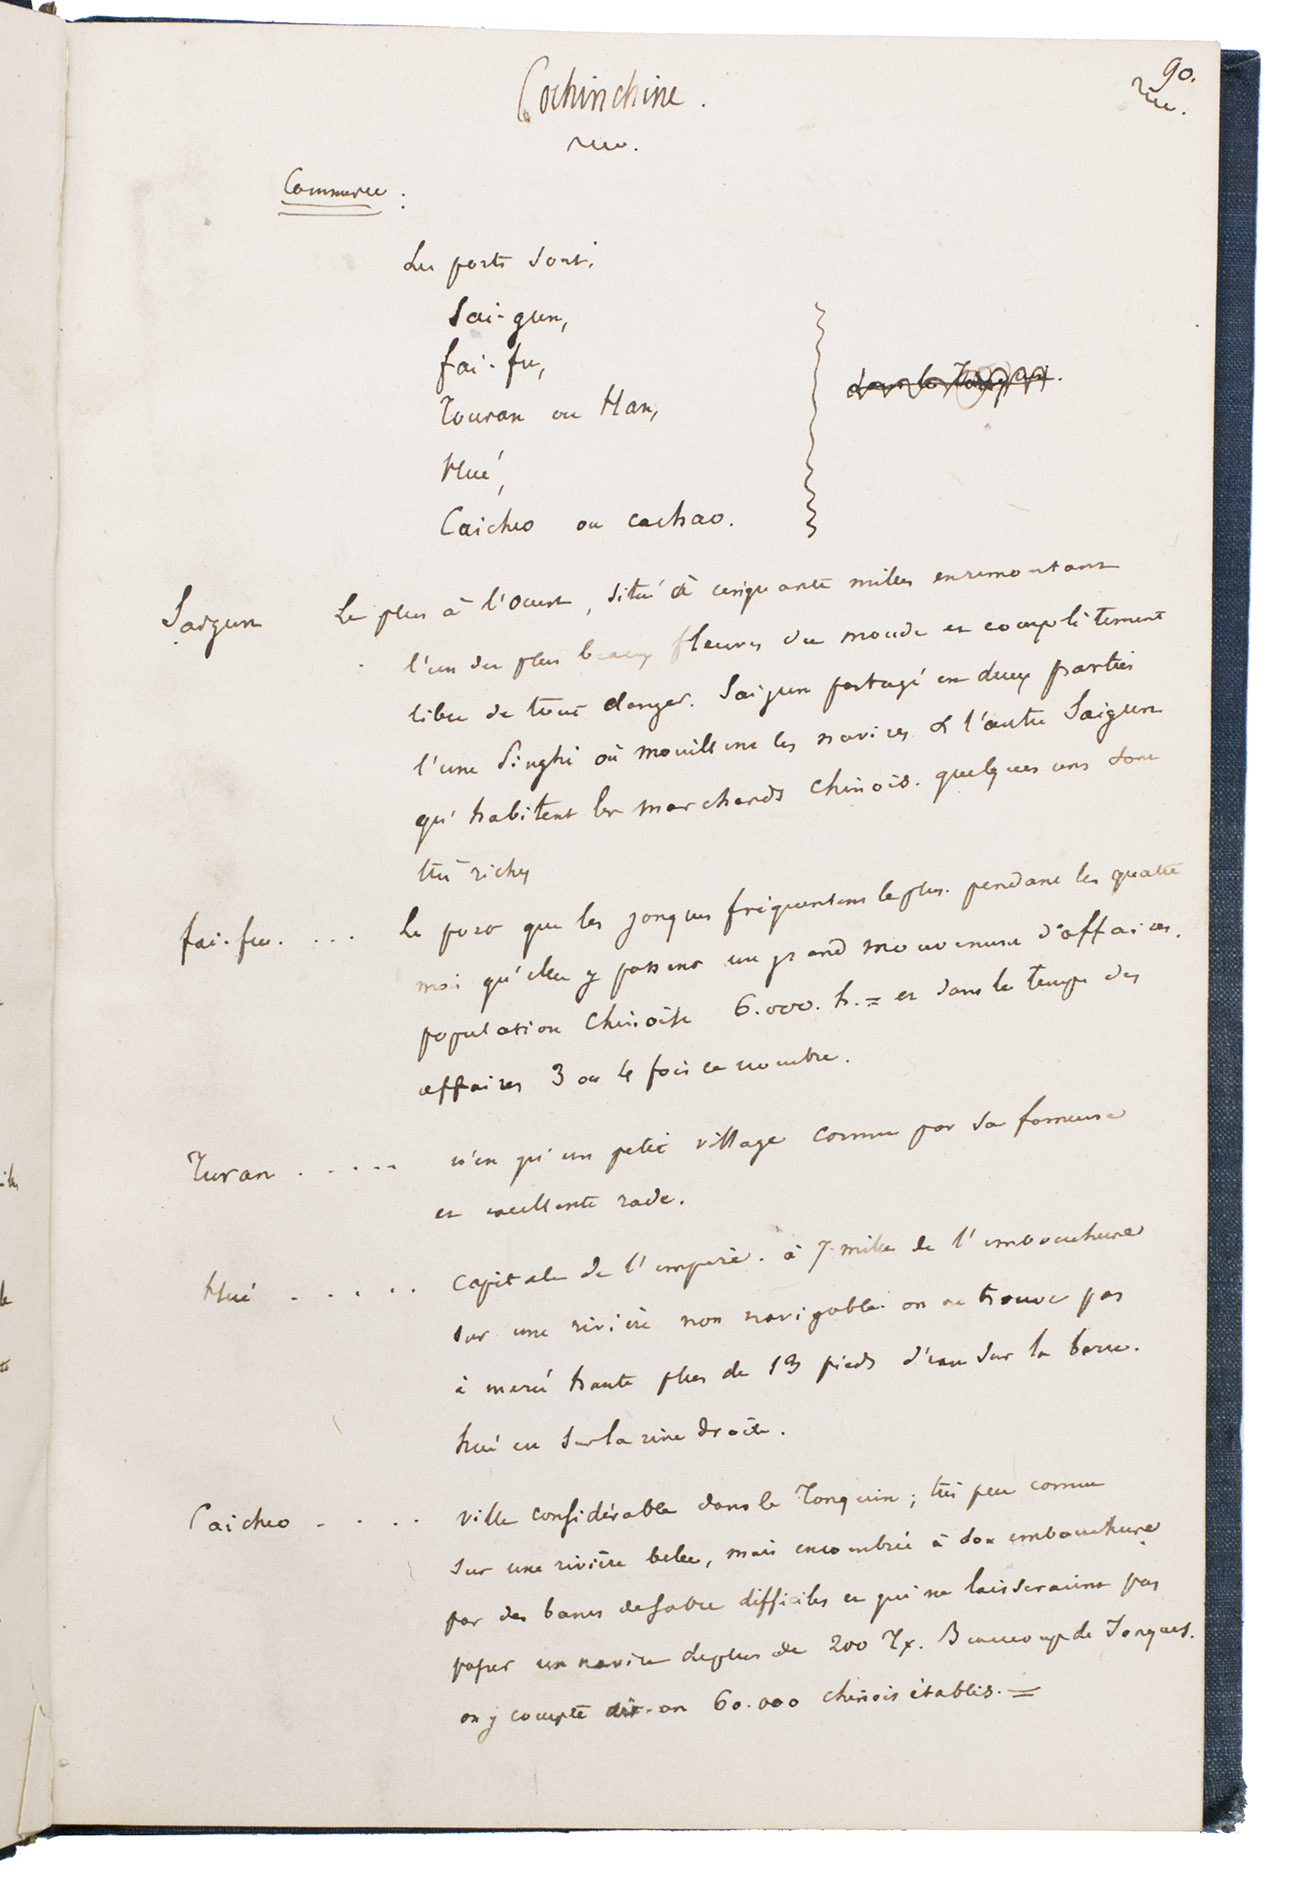 90.
Cochinchine.
Commerce :
Les ports sont,
Sai-gun,
fai-fu,
Touran ou Han,
Hué,
Caicheo ou cachao.
dans le Tonquin.
Saigun Le plus à l'Ouest, situé à cinquante milles en remontant
l'un des plus beaux fleuves du monde et complètement
libre de tout danger. Saigun partagé en deux parties
l'une Singhi où mouillent les navires & l'autre Saigun
qu'habitent les marchands chinois. quelques uns sont
très riches
fai-fu. ... Le port que les jonques fréquentent le plus. pendant les quatre
mois qu'elles y passent un grand mouvement d'affaires.
population chinoise 6.000. h. = et dans le temps des
affaires 3 ou 4 fois ce nombre.
Turan ..... n'est qu'un petit village connu par sa fameuse
et excellente rade.
Hué ..... Capitale de l'empire. à 7 milles de l'embouchure
sur une rivière non navigable. on ne trouve pas
à marée haute plus de 13 pieds d'eau sur la barre.
hué est sur la rive droite.
Caicheo .... Ville considérable dans le Tonquin ; très peu connue
sur une rivière belle, mais encombrée à son embouchure
par des bancs de sable difficiles et qui ne laisseraient pas
passer un navire de plus de 200 Tx. Beaucoup de Jonques.
on y compte dit-on 60.000 chinois établis. =